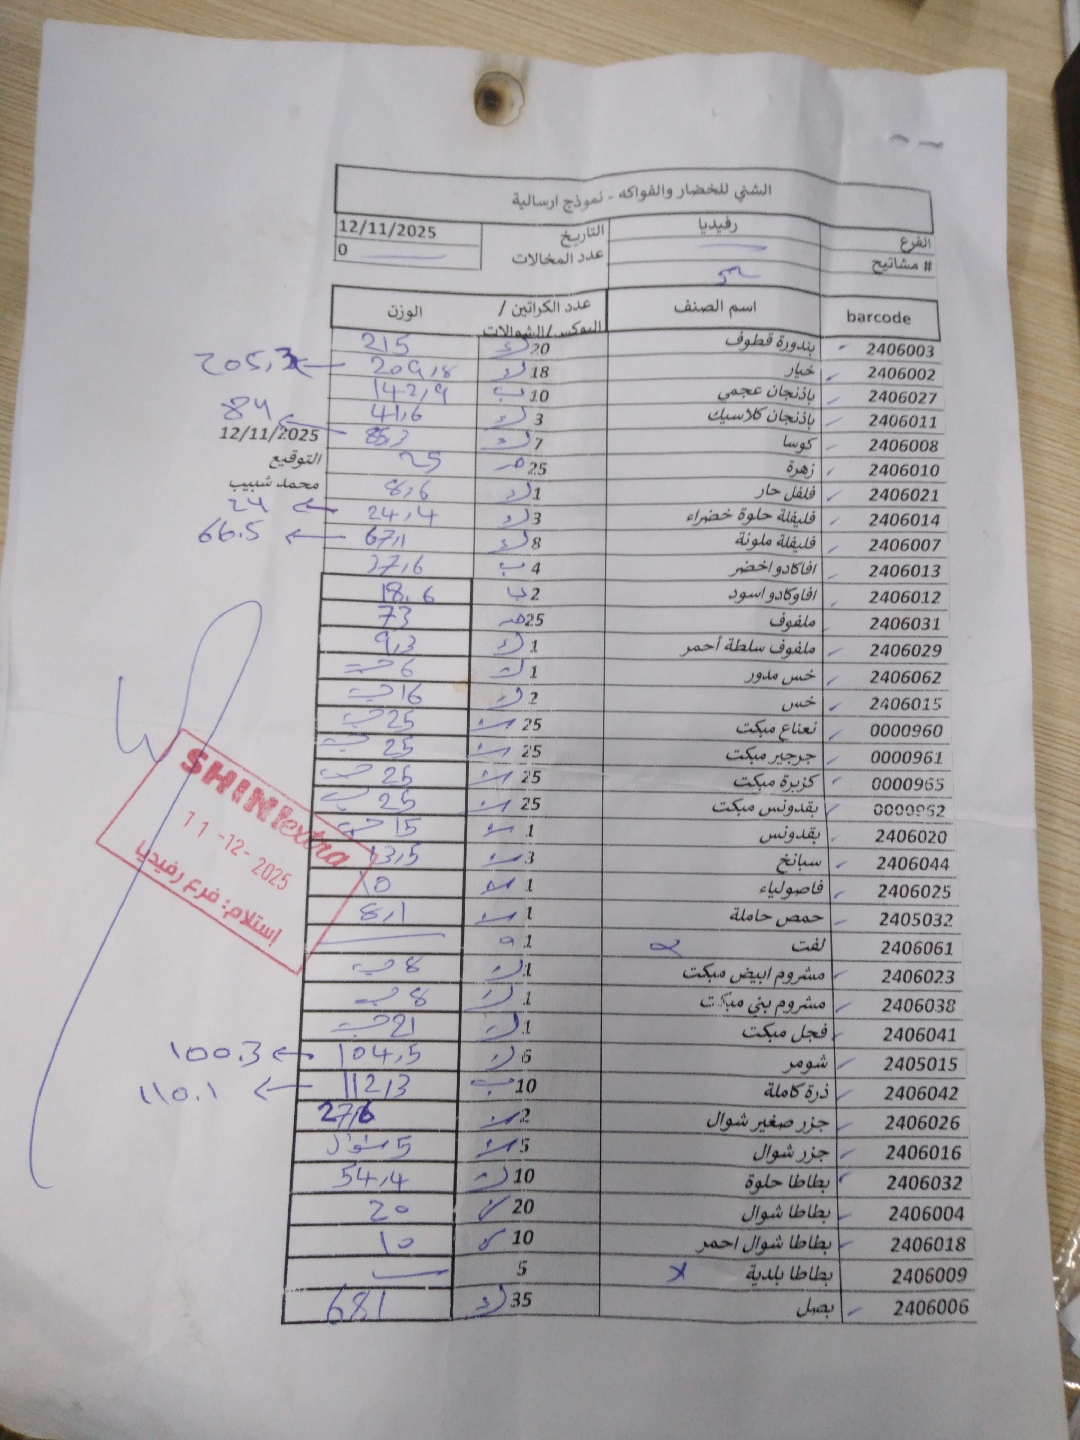 الشني للخضار والفواكه - نموذج ارسالية
الفرع رفيديا التاريخ 12/11/2025
# مشاتيح عدد المخالات 0
barcode اسم الصنف عدد الكراتين / البوكس/الشوالات الوزن
2406003 بندورة قطوف 20 ك 215
2406002 خيار 18 ك 209,8 ← 205,3
2406027 باذنجان عجمي 10 ب 142,9
2406011 باذنجان كلاسيك 3 ك 41,6
2406008 كوسا 7 ك 85,3 ← 84
12/11/2025
2406010 زهرة 25 25
التوقيع
2406021 فلفل حار 1 ك 8,6
محمد شبيب
2406014 فليفلة حلوة خضراء 3 ك 24,4 ← 24
2406007 فليفلة ملونة 8 ك 67,1 ← 66.5
2406013 افاكادو اخضر 4 ب 27,6
2406012 افاوكادو اسود 2 ب 18.6
2406031 ملفوف 25 73
2406029 ملفوف سلطة أحمر 1 ك 9,3
2406062 خس مدور 1 ك 6 حب
2406015 خس 2 ك 16 حب
0000960 نعناع مبكت 25 25 حب
0000961 جرجير مبكت 25 25 حب
0000965 كزبرة مبكت 25 25 حب
0000962 بقدونس مبكت 25 25 حب
2406020 بقدونس 1 15 حب
2406044 سبانخ 3 13,5
2406025 فاصولياء 1 10
2405032 حمص حاملة 1 8,1
2406061 لفت 1
2406023 مشروم ابيض مبكت 1 ك 8 حب
2406038 مشروم بني مبكت 1 ك 8 حب
2406041 فجل مبكت 1 ك 21 حب
2405015 شومر 6 ك 104,5 ← 100.3
2406042 ذرة كاملة 10 ب 112,3 ← 110.1
2406026 جزر صغير شوال 2 27,6
2406016 جزر شوال 5 5 شوال
2406032 بطاطا حلوة 10 ك 54,4
2406004 بطاطا شوال 20 20
2406018 بطاطا شوال احمر 10 10
2406009 بطاطا بلدية x 5
2406006 بصل 35 ك 681
SHINI extra
11-12-2025
إستلام: فرع رفيديا